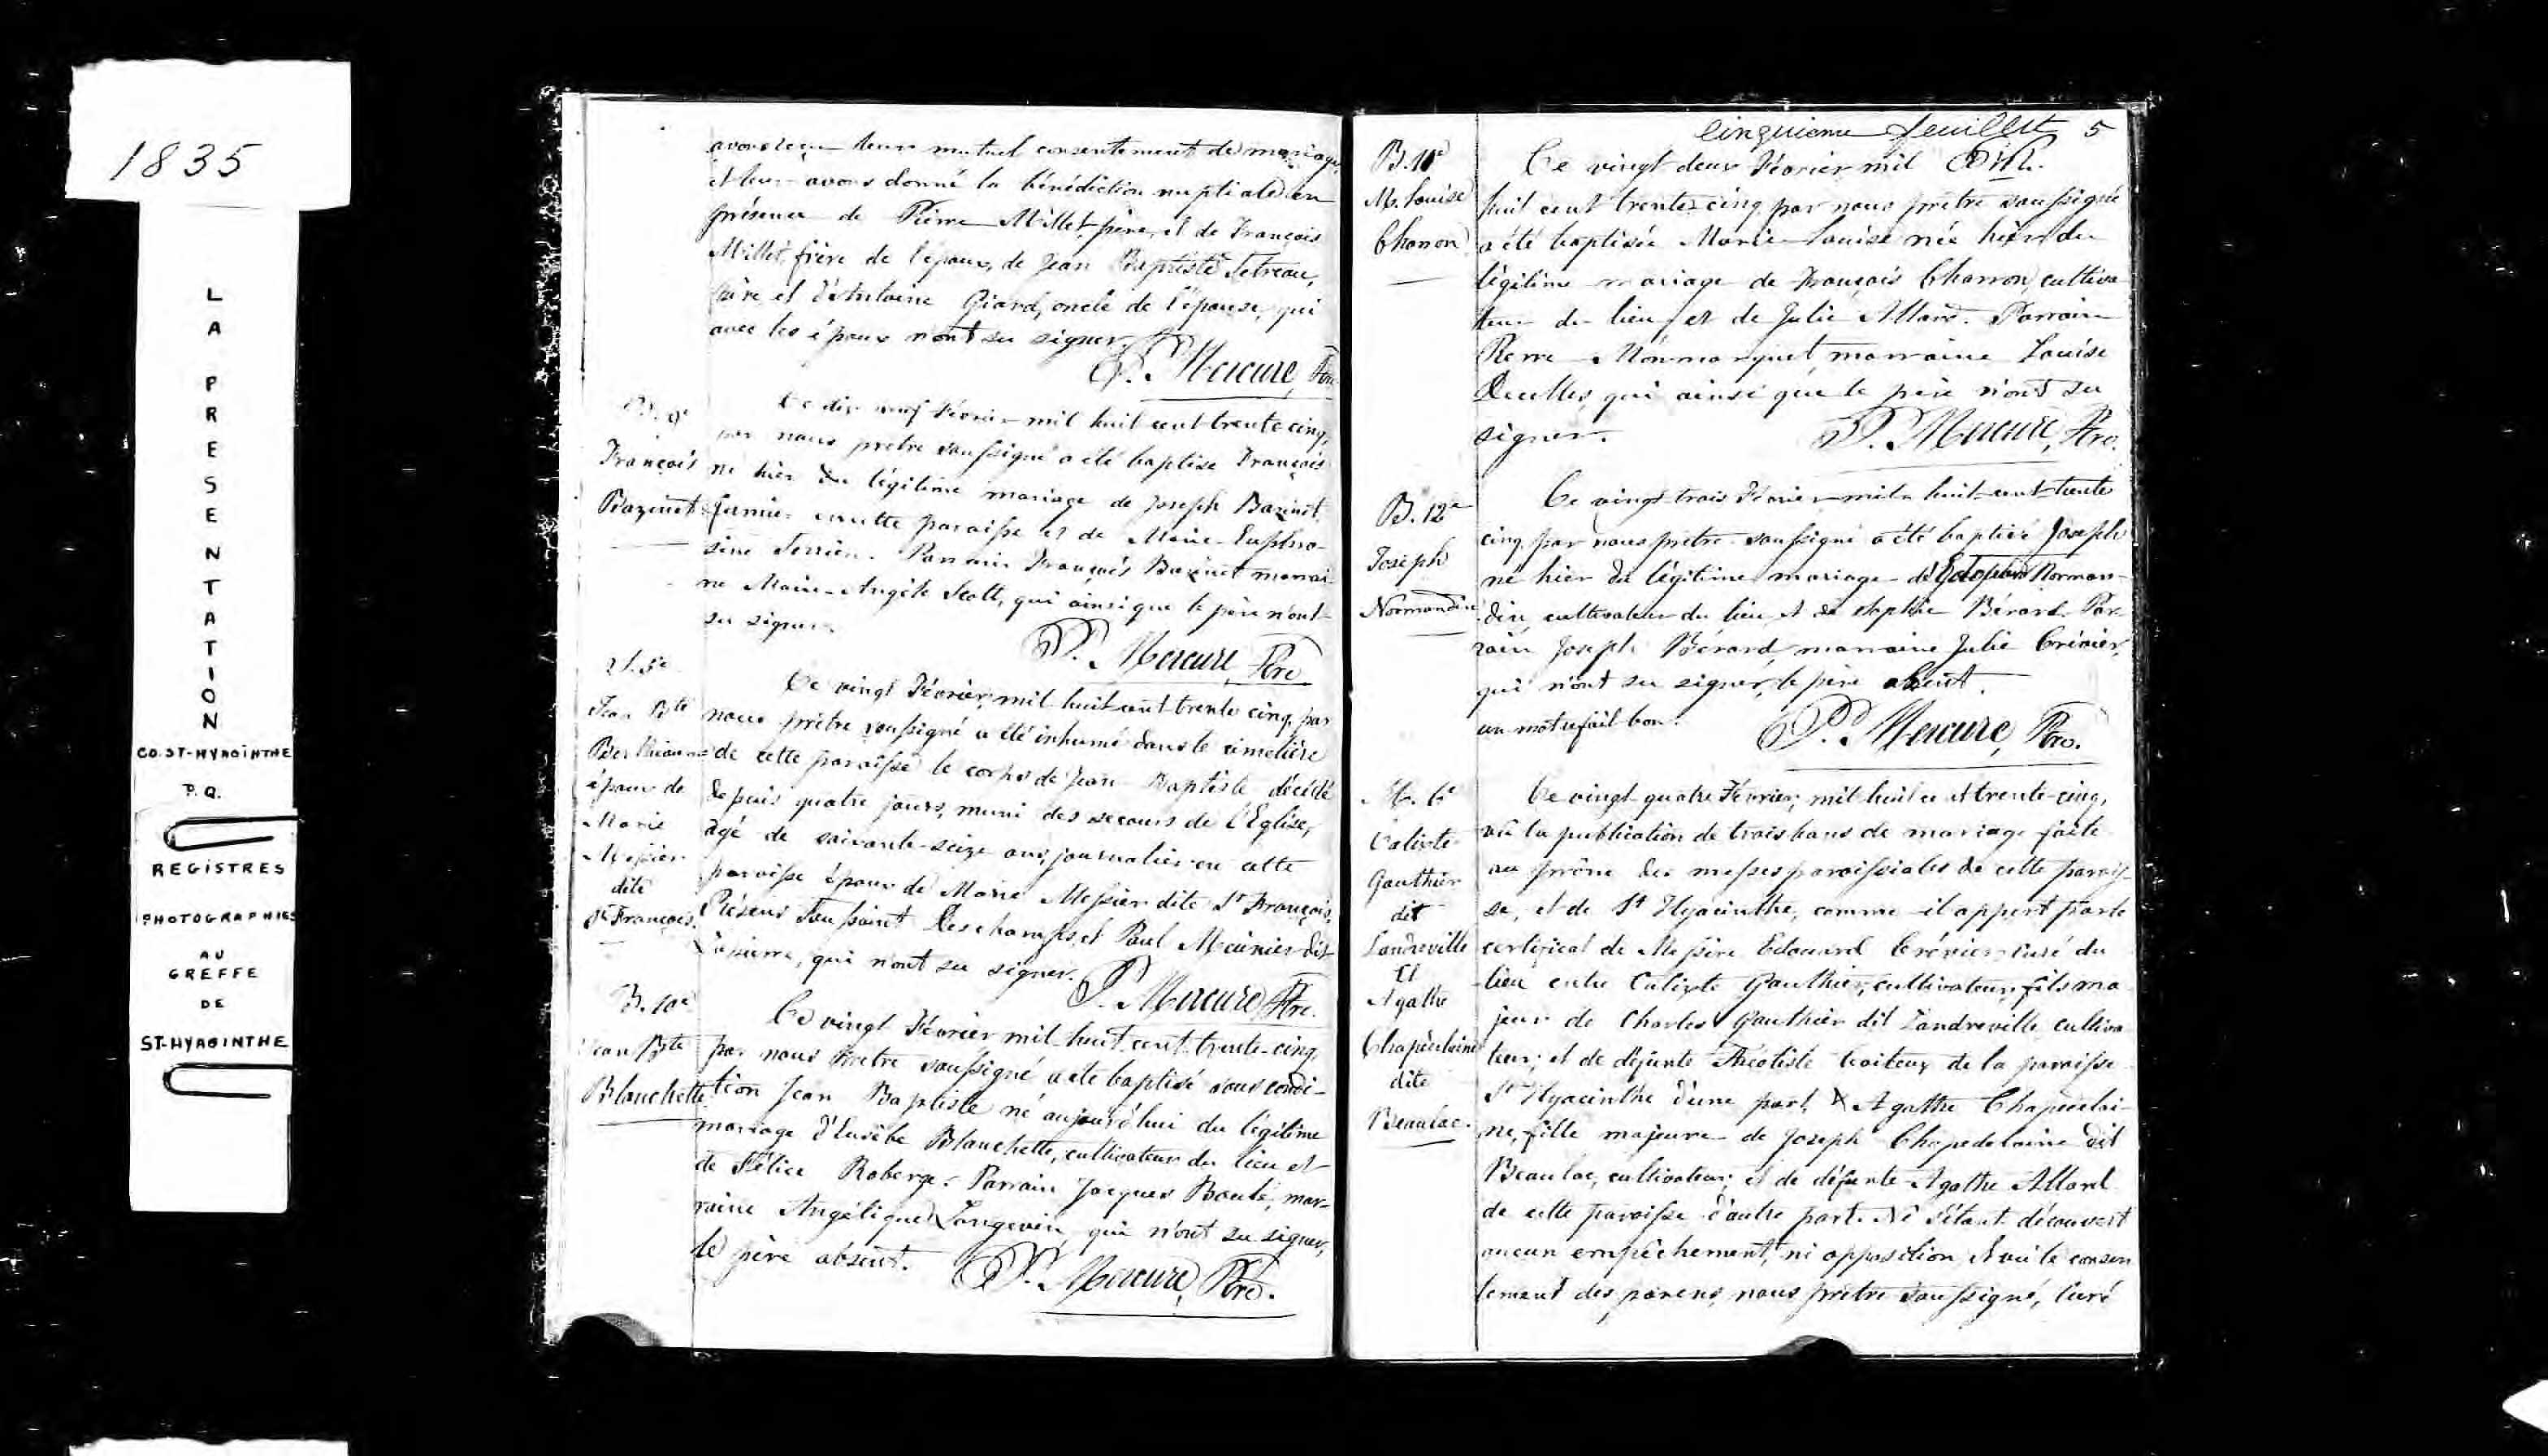 1835
LA PRESENTATION
CO. ST-HYACINTHE
P.Q.
REGISTRES
PHOTOGRAPHIES
AU
GREFFE
DE
ST-HYACINTHE
avons reçu leur mutuel consentement de mariage,
et leur avons donné la bénédiction nuptiale en
présence de Pierre Millet, père, et de François
Millet, frère de l'époux, de Jean Baptiste Tetreau,
père et d'Antoine Giard, oncle de l'épouse, qui
avec les époux n'ont su signer.
P. Mercure, Ptre
B. 9e
François
Bazinet
Ce dix neuf Février mil huit cent trente cinq,
par nous prêtre soussigné a été baptisé François
né hier du légitime mariage de Joseph Bazinet
fermier en cette paroisse et de Marie Euphro-
sine Terrien. Parrain François Bazinet marrai-
ne Marie-Angèle Scott, qui ainsi que le père n'ont
su signer.
P. Mercure, Ptre
S. 5e
Jean Bte
Berthiaume
époux de
Marie
Messier
dite
St François.
Ce vingt Février, mil huit cent trente cinq, par
nous prêtre soussigné a été inhumé dans le cimetière
de cette paroisse le corps de Jean-Baptiste décédé
depuis quatre jours, muni des secours de l'Eglise,
agé de soixante-seize ans, journalier en cette
paroisse époux de Marie Messier dite St François,
Présens Toussaint Deschamps, et Paul Meunier dit
Lapierre, qui n'ont su signer.
P. Mercure, Ptre.
B. 10e
Jean Bte
Blanchette
Ce vingt Février mil huit cent trente-cinq,
par nous Prêtre soussigné a été baptisé sous condi-
tion Jean Baptiste né aujourd'hui du légitime
mariage d'Eusèbe Blanchette, cultivateur du lieu et
de Félice Roberge. Parrain Jacques Boulé, mar-
raine Angélique Langevin, qui n'ont su signer,
le père absent.
P. Mercure, Ptre.
cinquieme feuillet 5
B. 11e
M. Louise
Charron
Ce vingt deux Février mil
huit cent trente-cinq par nous prêtre soussigné
a été baptisée Marie-Louise née hier du
légitime mariage de François Charron, cultiva
teur du lieu, et de Julie Allard. Parrain
Pierre Monmarquet, marraine Louise
Decelles, qui ainsi que le père n'ont su
signer.
P. Mercure, Ptre.
B. 12e
Joseph
Normandin
Ce vingt-trois Février mil huit-cent-trente
cinq, par nous prêtre soussigné a été baptisé Joseph
né hier du légitime mariage de Norman-
din, cultivateur du lieu et de Sophie Bérard. Par-
rain Joseph Bérard, marraine Julie Crévier,
qui n'ont su signer, le père absent.
un mot refait bon.
P. Mercure, Ptre.
M. 6e
Calixte
Gauthier
dit
Landreville
et
Agathe
Chapedelaine
dite
Beaulac.
Ce vingt-quatre Février, mil huit cent trente-cinq,
vû la publication de trois bans de mariage faite
au prône des messes paroissiales de cette parois-
se, et de St Hyacinthe, comme il appert par le
certificat de Messire Edouard Crévier curé du
lieu entre Calixte Gauthier, cultivateur, fils ma
jeur de Charles Gauthier dit Landreville cultiva
teur; et de défunte Théotiste Loiteux de la paroisse
St Hyacinthe d'une part, & Agathe Chapedelai-
ne, fille majeure de Joseph Chapedelaine dit
Beaulac, cultivateur, et de défunte Agathe Allard
de cette paroisse d'autre part. Ne s'étant découvert
aucun empêchement, ni opposition, et vû le consen
tement des parens, nous prêtre soussigné, Curé